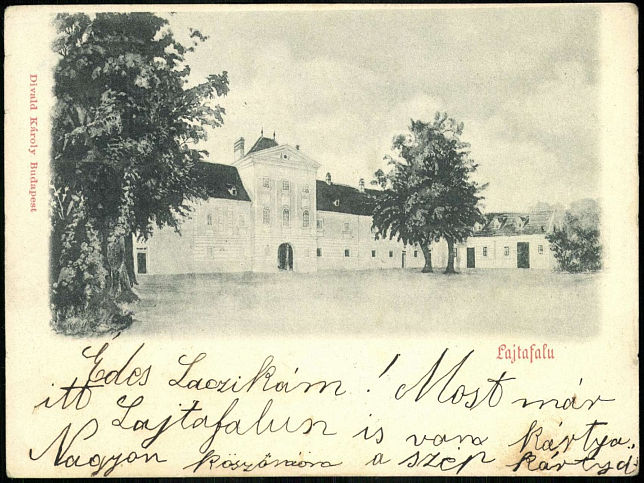 Divald Károly Budapest
Lajtafalu
Édes Laczikám! Most már
itt Lajtafalun is van kártya.
Nagyon köszönöm a szép kártyd